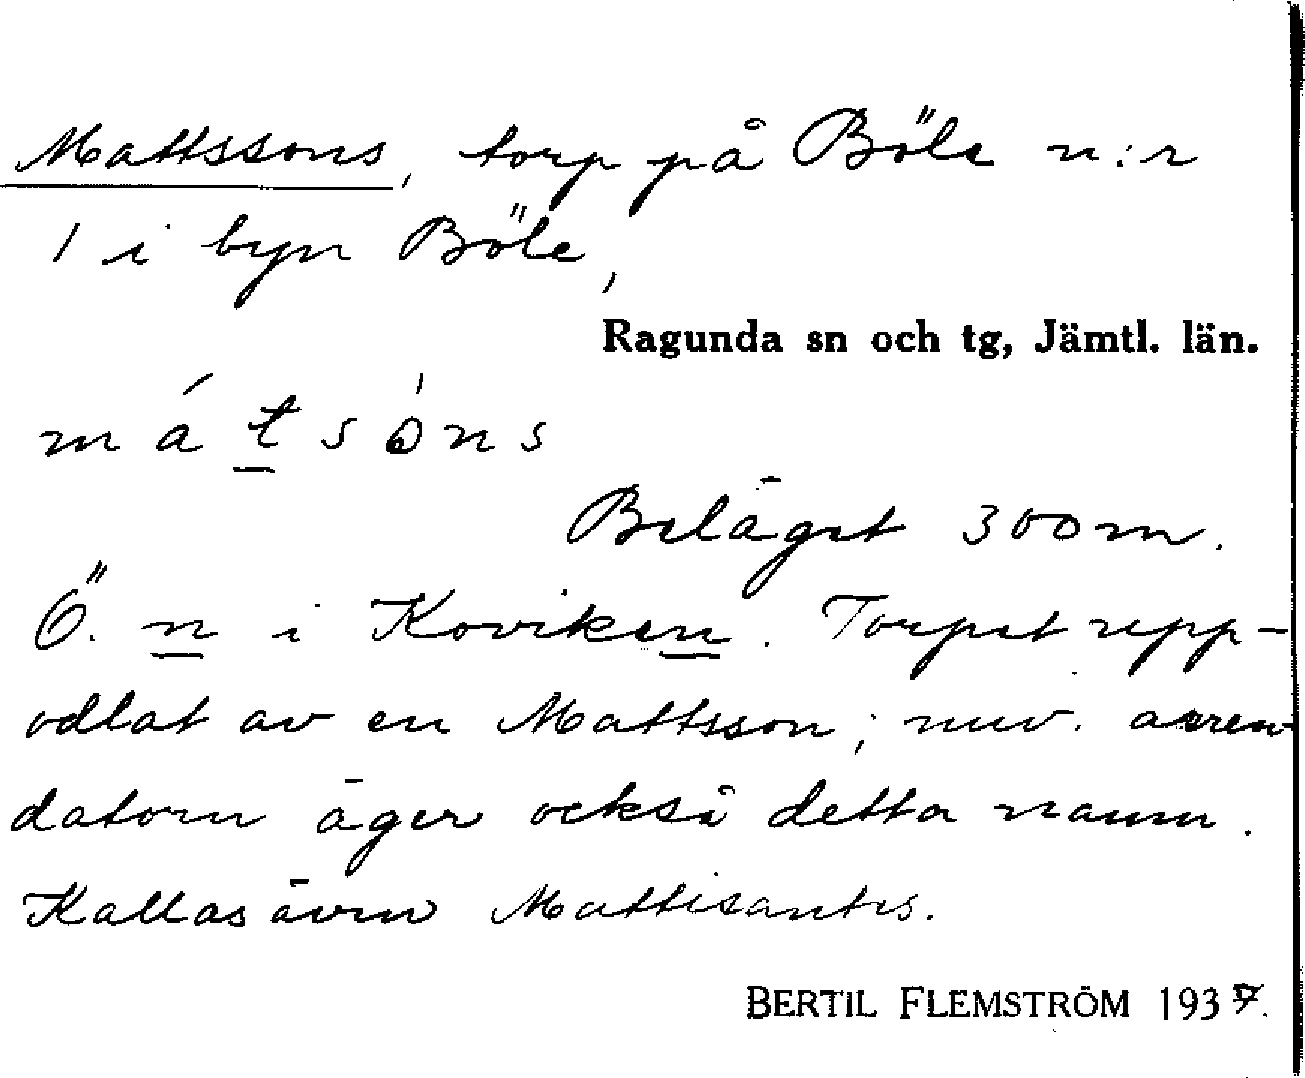 Mattssons, torp på Böle n:r
1 i byn Böle,
Ragunda sn och tg, Jämtl. län.
má t̲ s ò n s
Beläget 300 m.
Ö. n̲ i Koviken̲. Torpet upp-
odlat av en Mattsson; nuv. arren-
datorn äger också detta namn.
Kallas även
BERTIL FLEMSTRÖM 1937.